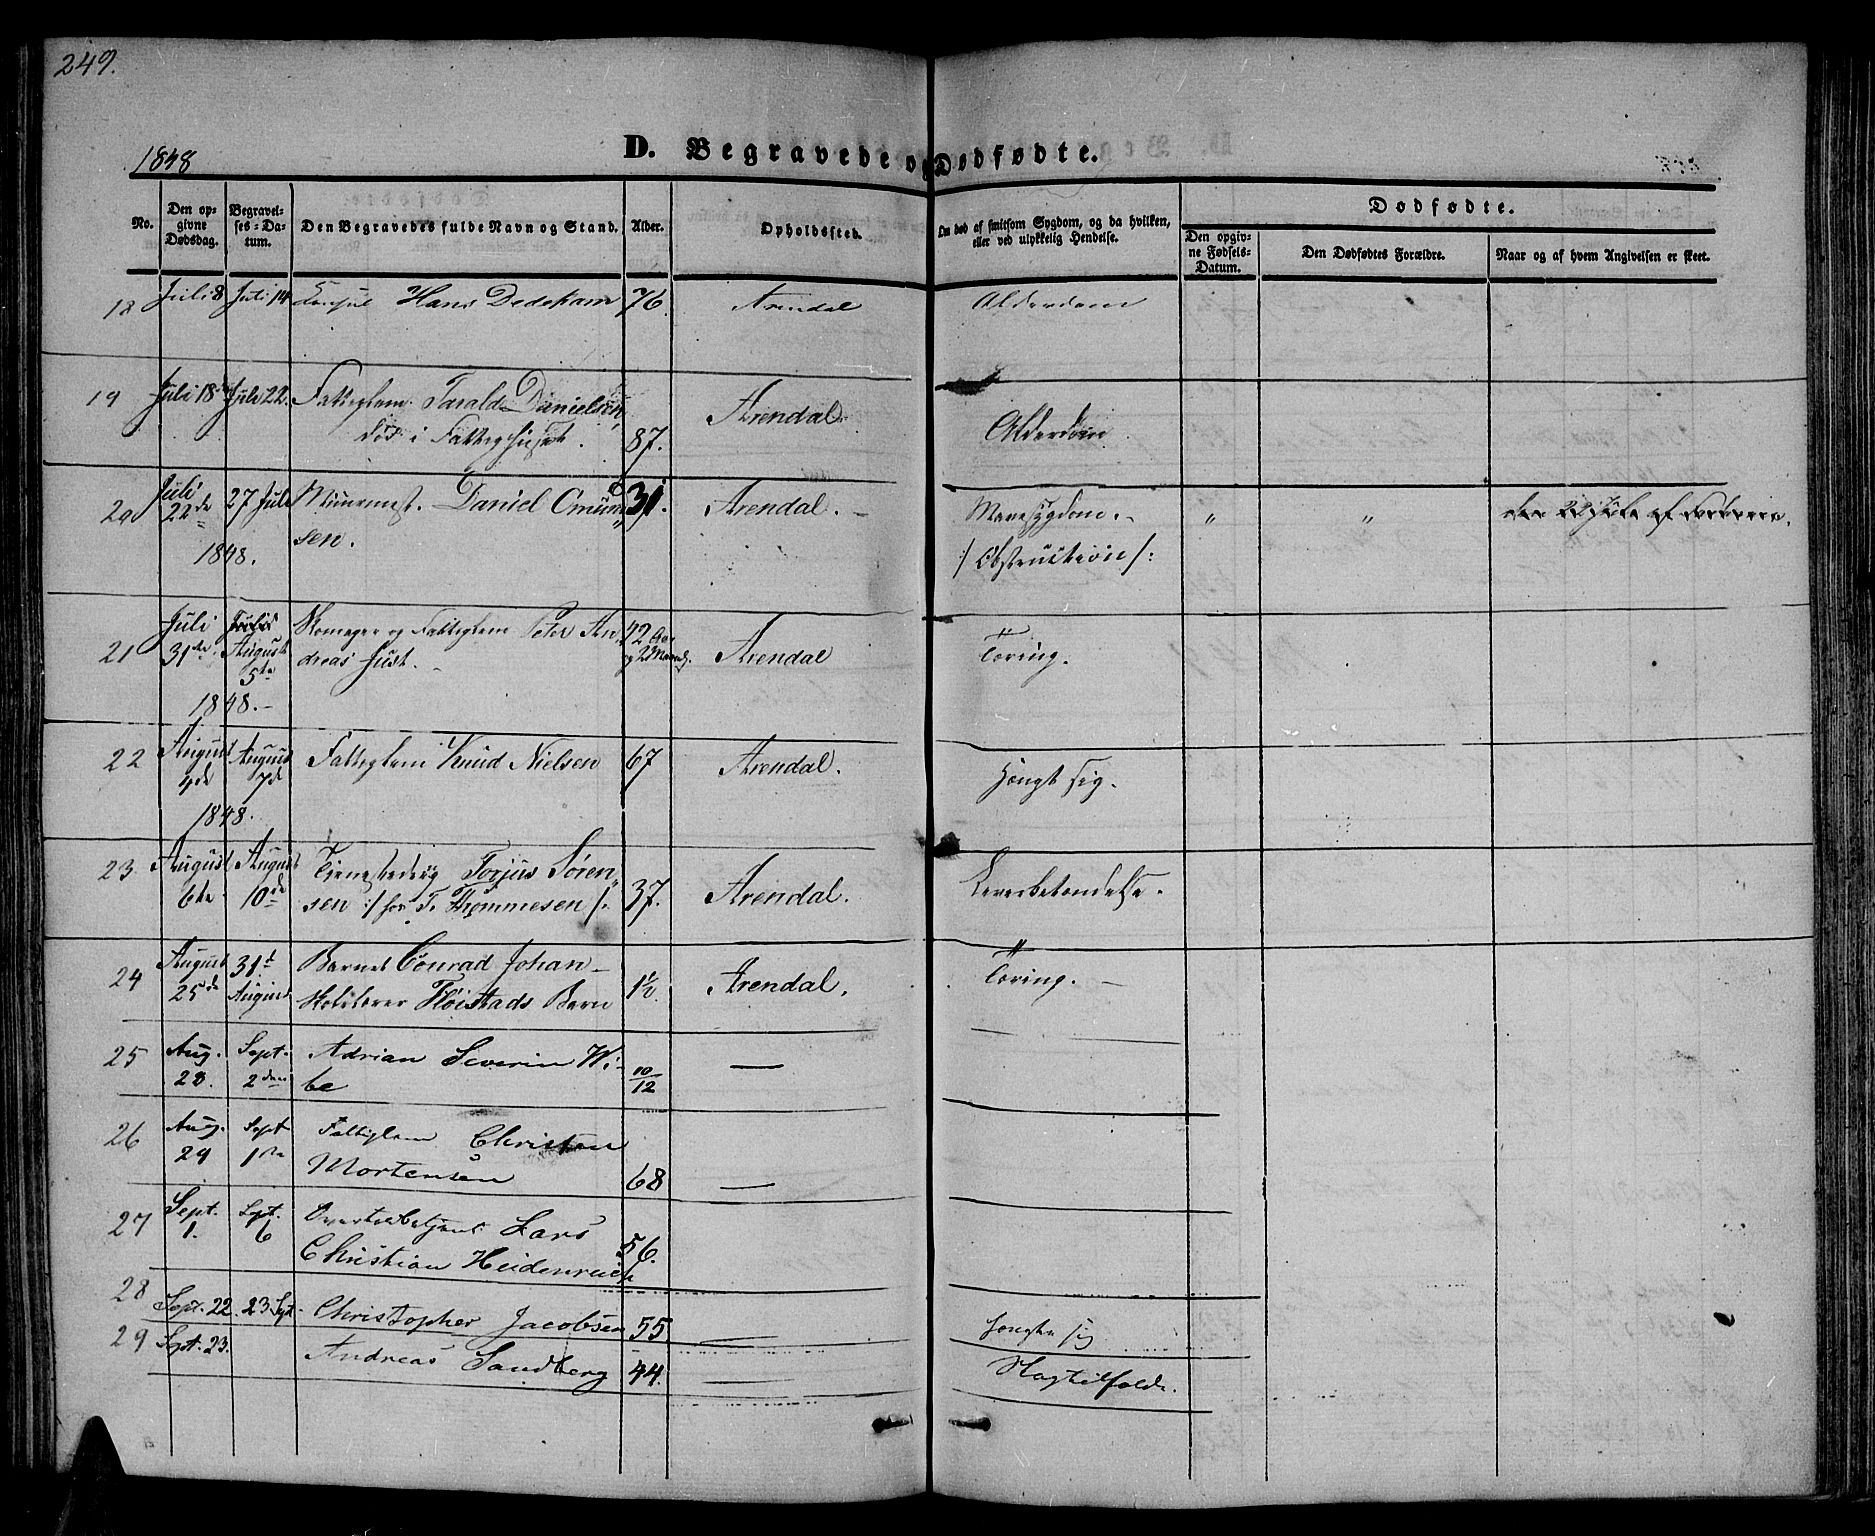 249.
1848
D. Begravede og Dødfødte.
No.
Den opgivne Dødsdag.
Begravelses-Datum.
Den Begravedes fulde Navn og Stand.
Alder.
Opholdssted.
Om død af smitsom Sygdom, og da hvilken, eller ved ulykkelig Hendelse.
Dødfødte.
Den opgivne Fødsels-Datum.
Den Dødfødtes Forældre.
Naar og af hvem Angivelsen er skeet.
18 Juli 8 Juli 14 Consul Hans Dedekam 76. Arendal Alderdom
19 Juli 18 Juli 22. Fattiglem. Tarald Danielsen
død i Fattighuset. 87. Arendal. Alderdom
20 Juli 22de 27 Juli Muurmest. Daniel Omund 31. Arendal. Mavesygdom. " " den 22 Juli af
1848. sen. /Obstruction/:
21 Juli 31te Juli August 5te Skomager og Fattiglem Peter An 42 Aar
dreas Just. og 2 Maand. Arendal Tæring.
1848.
22 August 4de August 7de Fattiglem Knud Nielsen 67 Arendal. Hængt sig.
1848.
23 August 6te August 10de Tjenestedreng Torjus Søren
sen :/for T. Thommesen/: 37. Arendal. Leverbetændelse.
24 August 25de 31te August Barnet Conrad Johan
Skolelærer Fløistads Barn 1½. Arendal. Tæring.
25 Aug. 28. Sept. 2den Adrian Severin Wi-
be 10/12 —
26 Aug. 29 Sept 1ste Fattiglem Christen
Mortensen 68 —
27 Sept. 1. Sept. 6 Overtoldbetjent Lars
Christian Heidenreich 56.
28 Sept. 22 23 Sept. Christopher Jacobsen 55 — hængte sig
29 Sept. 23. Andreas Sandberg 44. — Slagtilfælde.